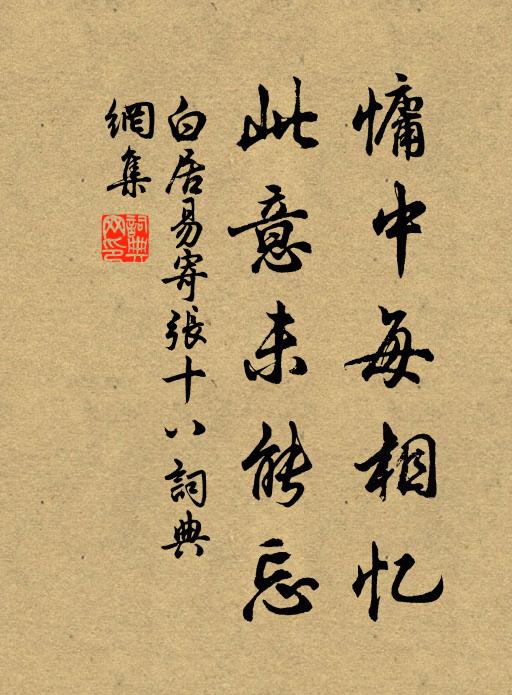 慵中每相忆
此意未能忘
白居易寄張十八詞典
網集
詞典网印